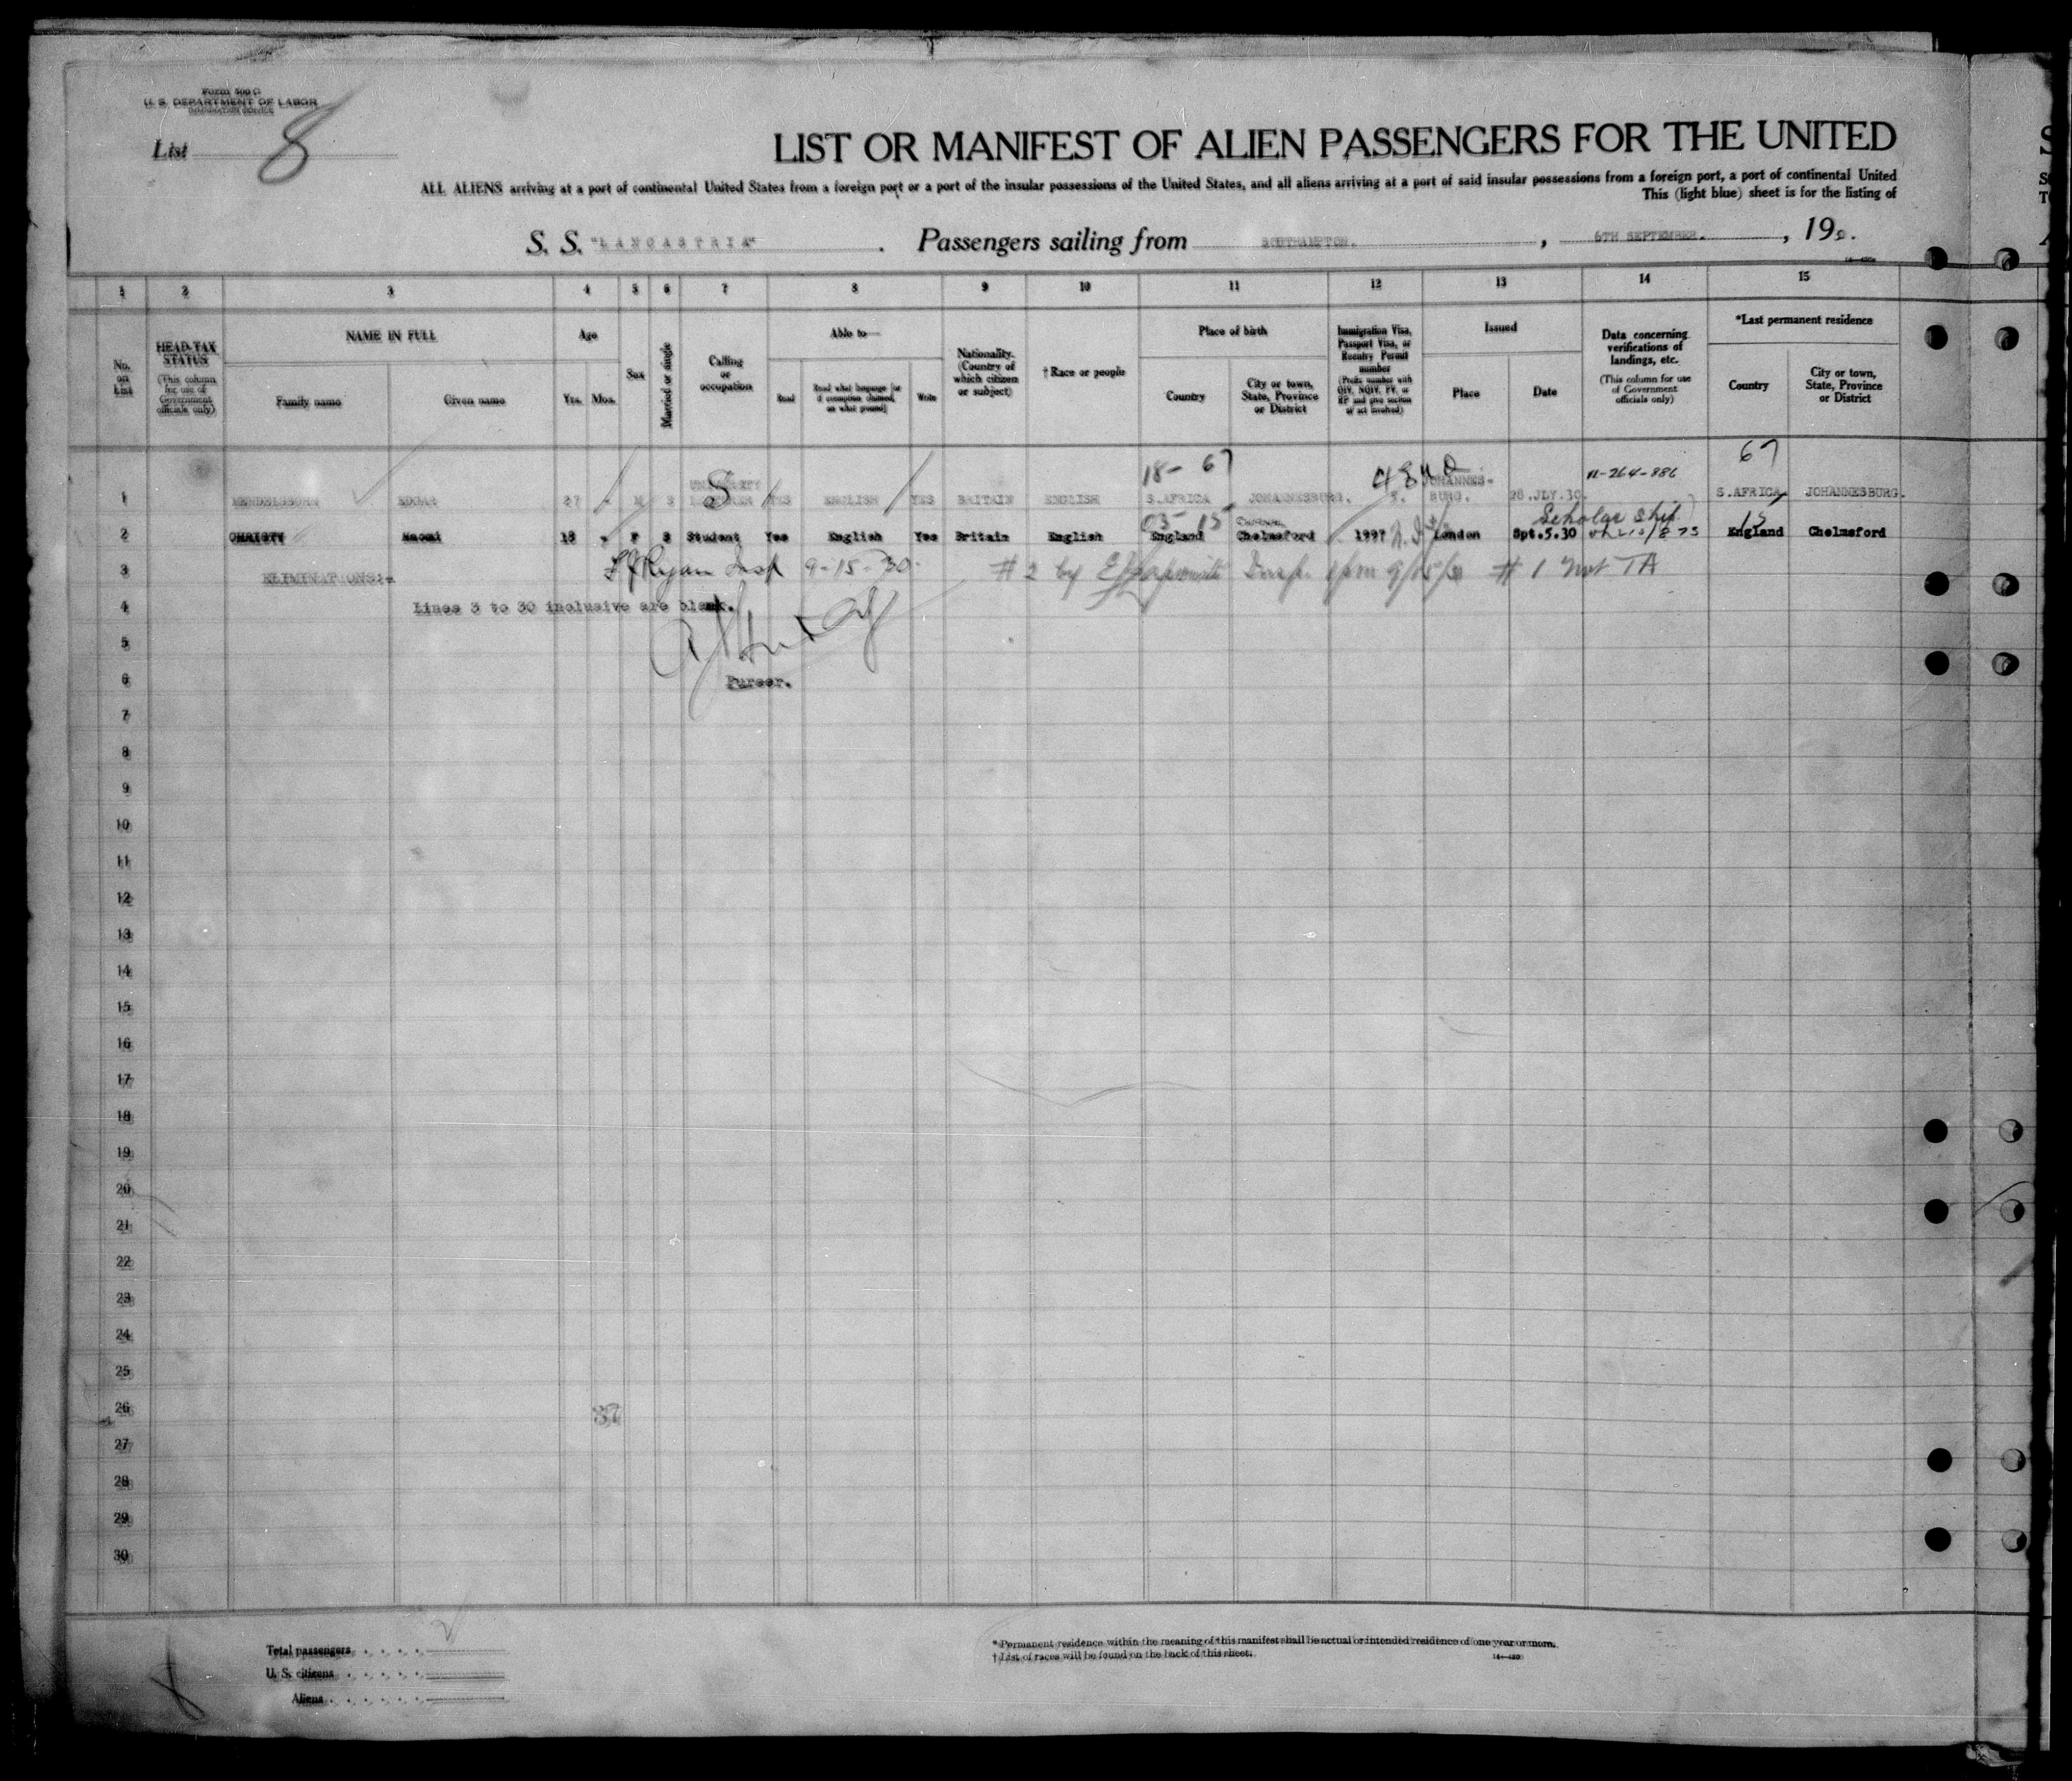 Form 500 C
U. S. DEPARTMENT OF LABOR
IMMIGRATION SERVICE
List 8
LIST OR MANIFEST OF ALIEN PASSENGERS FOR THE UNITED
ALL ALIENS arriving at a port of continental United States from a foreign port or a port of the insular possessions of the United States, and all aliens arriving at a port of said insular possessions from a foreign port, a port of continental United
This (light blue) sheet is for the listing of
S. S. "LANCASTRIA". Passengers sailing from SOUTHAMPTON. , 6TH SEPTEMBER. , 19
1 2 3 4 5 6 7 8 9 10 11 12 13 14 15
No. on List
HEAD-TAX STATUS (This column for use of Government officials only)
NAME IN FULL
Family name
Given name
Age
Yrs. Mos.
Sex
Married or single
Calling or occupation
Able to
Read
Read what language [or if exemption claimed, on what ground]
Write
Nationality. (Country of which citizen or subject)
† Race or people
Place of birth
Country
City or town, State, Province or District
Immigration Visa, Passport Visa, or Reentry Permit number (Prefix number with QIV, NQIV, PV, or RP and give section of act involved)
Issued
Place
Date
Data concerning verifications of landings, etc. (This column for use of Government officials only)
*Last permanent residence
Country
City or town, State, Province or District
18- 67
67
1 MENDELSSOHN EDGAR 27 - M S UNIVERSITY LECTURER YES ENGLISH YES BRITAIN ENGLISH S.AFRICA JOHANNESBURG. JOHANNES-BURG. 28.JLY.30. S.AFRICA JOHANNESBURG.
03- 15
Scholar ship
15
2 CHRISTY Naomi 18 - F S Student Yes English Yes Britain English England Chelmsford 1997 London Spt.5.30 England Chelmsford
3 ELIMINATIONS:- Ryan Insp 9-15-30. # 2 by Insp. 9/15/30 # 1 not TA
4 Lines 3 to 30 inclusive are blank.
5
6 Purser.
7
8
9
10
11
12
13
14
15
16
17
18
19
20
21
22
23
24
25
26 37
27
28
29
30
Total passengers . . . . .
U. S. citizens . . . . .
Aliens . . . . . .
* Permanent residence within the meaning of this manifest shall be actual or intended residence of one year or more.
† List of races will be found on the back of this sheet.